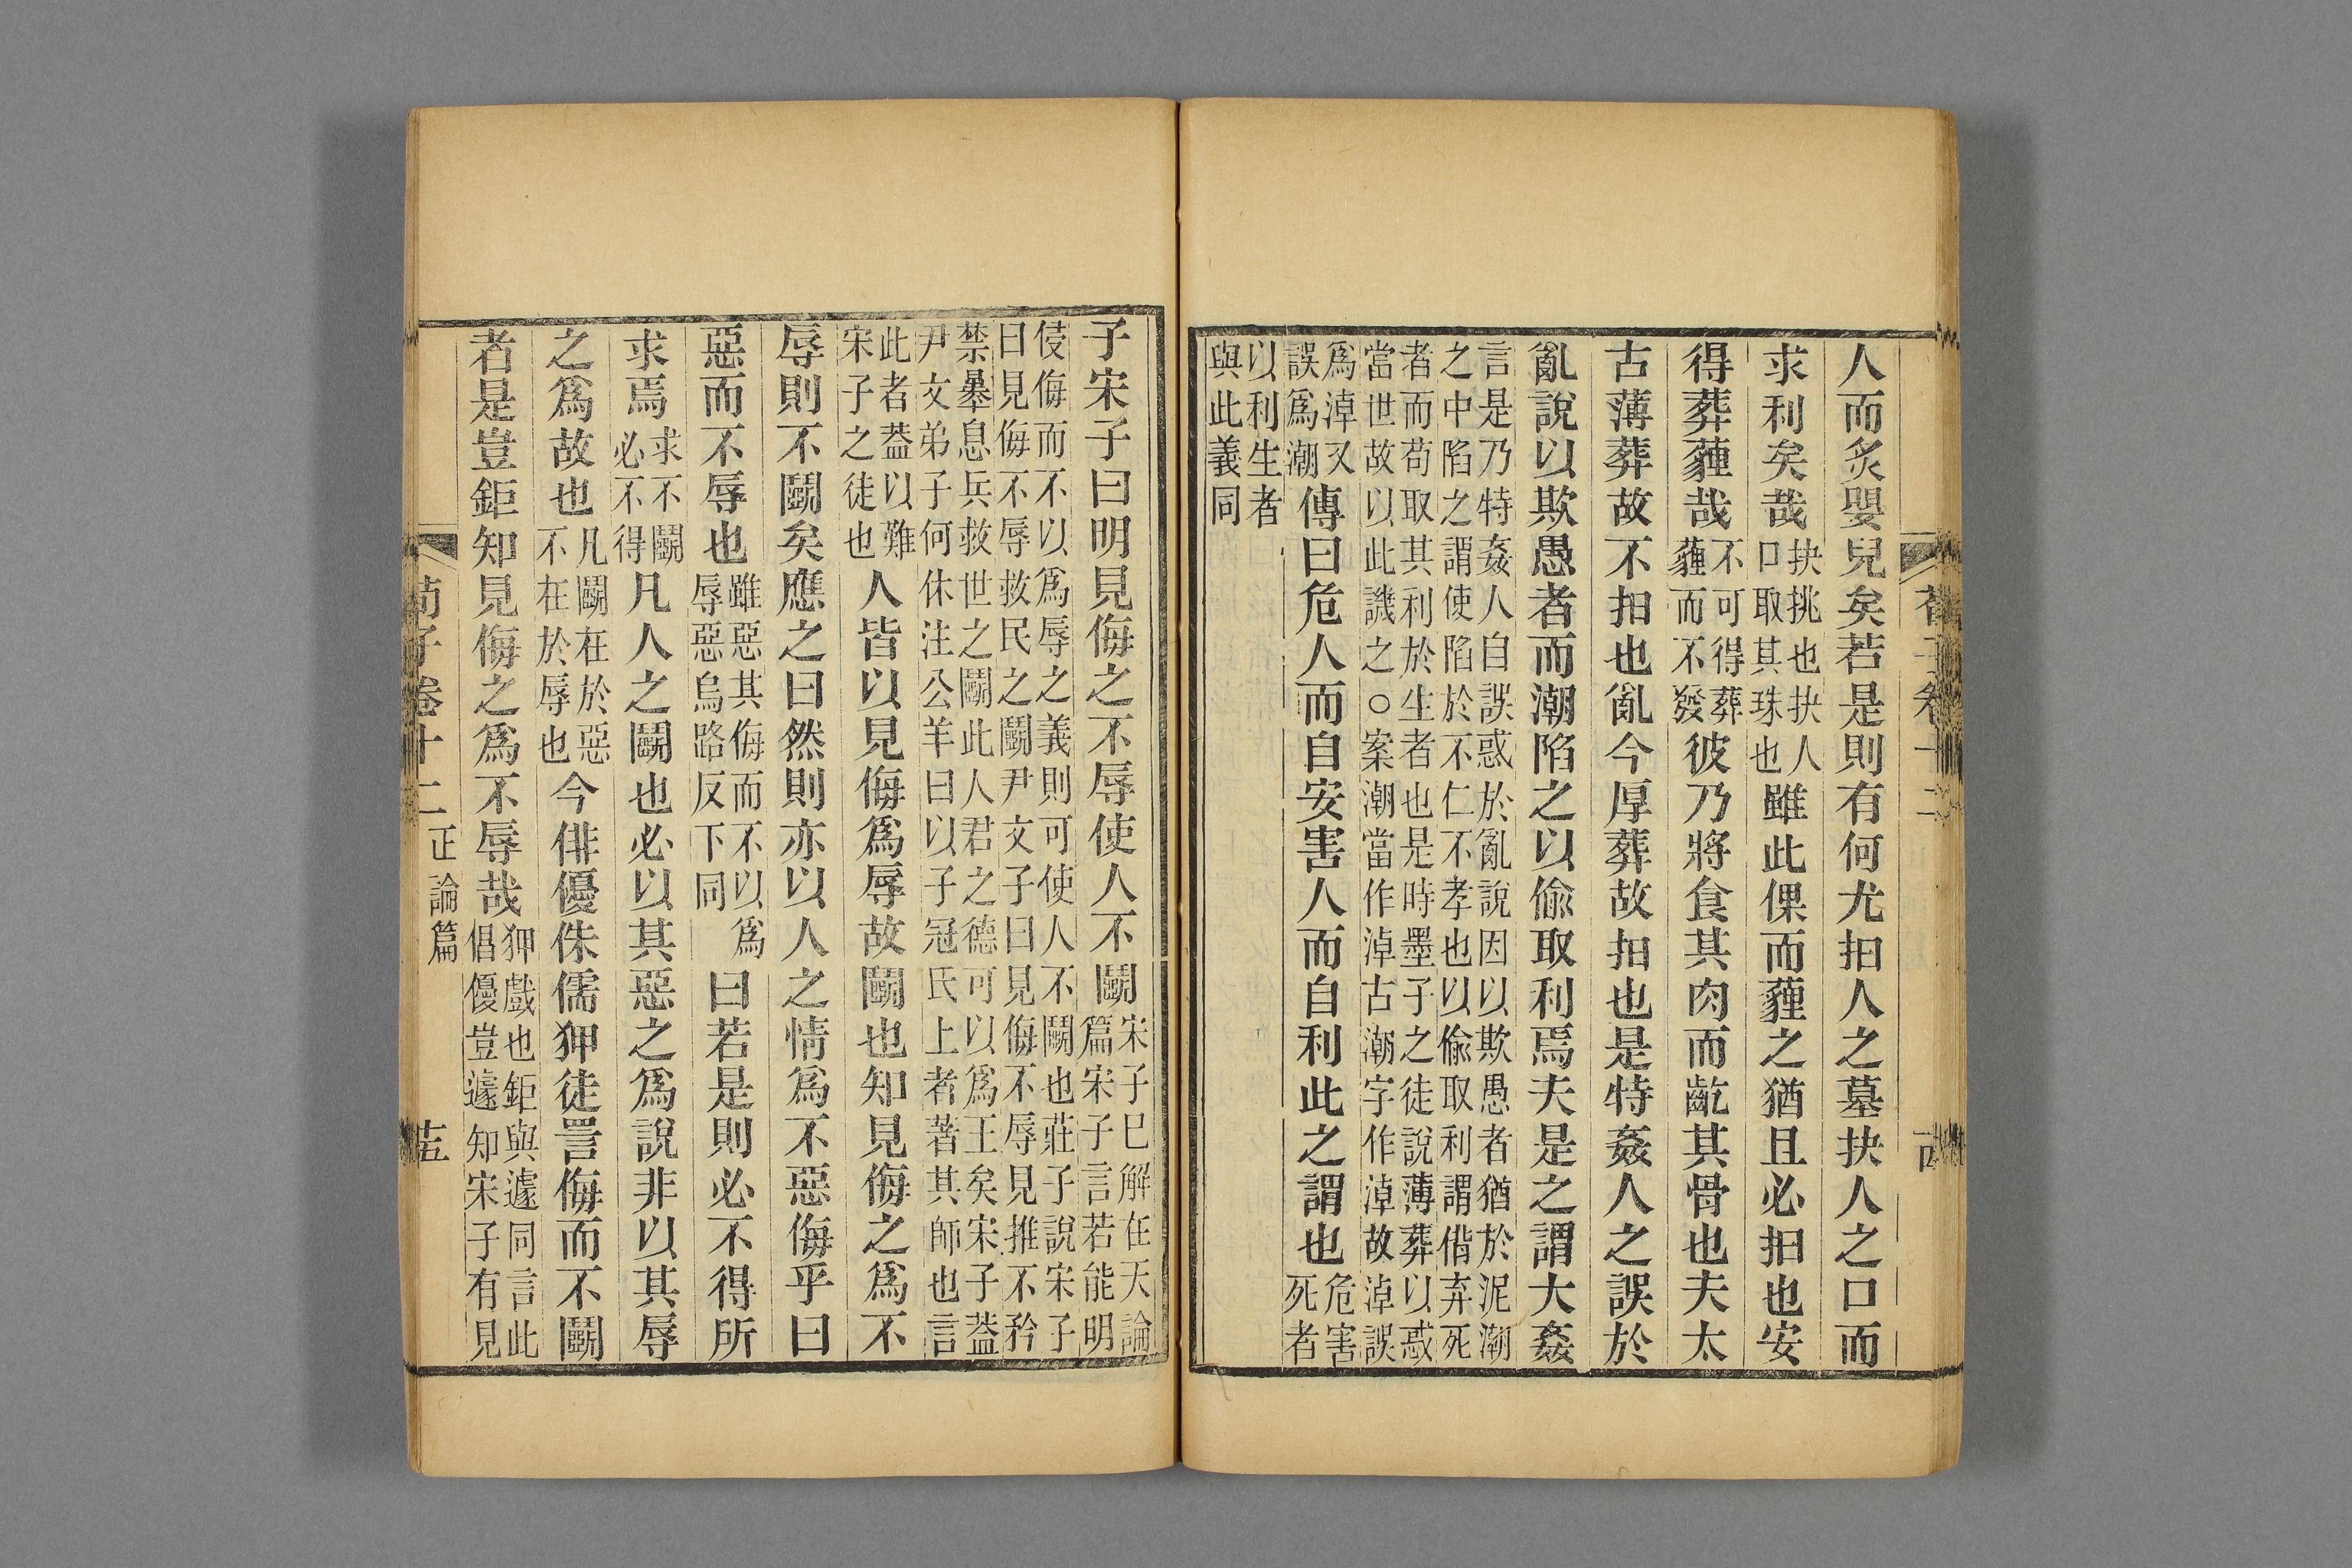 人而炙嬰兒矣若是則有何尤抇人之墓抉人之口而
求利矣哉抉挑也抉人口取其珠也雖此倮而薶之猶且必抇也安
得葬薶哉不可得葬薶而不發彼乃將食其肉而齕其骨也夫太
古薄葬故不抇也亂今厚葬故抇也是特姦人之誤於
亂說以欺愚者而潮陷之以偷取利焉夫是之謂大姦
言是乃特姦人自誤惑於亂說因以欺愚者猶於泥潮
之中陷之謂使陷於不仁不孝也以偷取利謂偕弃死
者而苟取其利於生者也是時墨子之徒說薄葬以惑
當世故以此譏之○案潮當作淖古潮字作淖故淖誤
爲淖又誤爲潮傳曰危人而自安害人而自利此之謂也危害死者
以利生者
與此義同
荀子卷十二
子宋子曰明見侮之不辱使人不鬭宋子已解在天論篇宋子言若能明
侵侮而不以爲辱之義則可使人不鬭也莊子說宋子
曰見侮不辱救民之鬭尹文子曰見侮不辱見推不矜
禁暴息兵救世之鬭此人君之德可以爲王矣宋子葢
尹文弟子何休注公羊曰以子冠氏上者著其師也言
此者葢以難宋子之徒也人皆以見侮爲辱故鬭也知見侮之爲不
辱則不鬭矣應之曰然則亦以人之情爲不惡侮乎曰
惡而不辱也雖惡其侮而不以爲辱惡烏路反下同曰若是則必不得所
求焉求不鬭必不得凡人之鬭也必以其惡之爲說非以其辱
之爲故也凡鬭在於惡不在於辱也今俳優侏儒狎徒詈侮而不鬭
者是豈鉅知見侮之爲不辱哉狎戲也鉅與遽同言此倡優豈遽知宋子有見
荀子卷十二 正論篇 十五